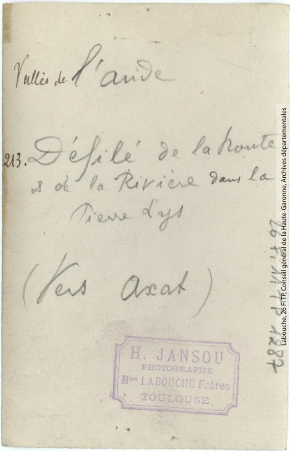 Vallée de l'aude
213. Défilé de la Route
& de la Rivière dans la
Pierre Lys
(Vers Axat)
H. JANSOU
PHOTOGRAPHE
Mon LABOUCHE Frères
TOULOUSE
Labouche, 26 FI TP, Conseil général de la Haute-Garonne, Archives départementales